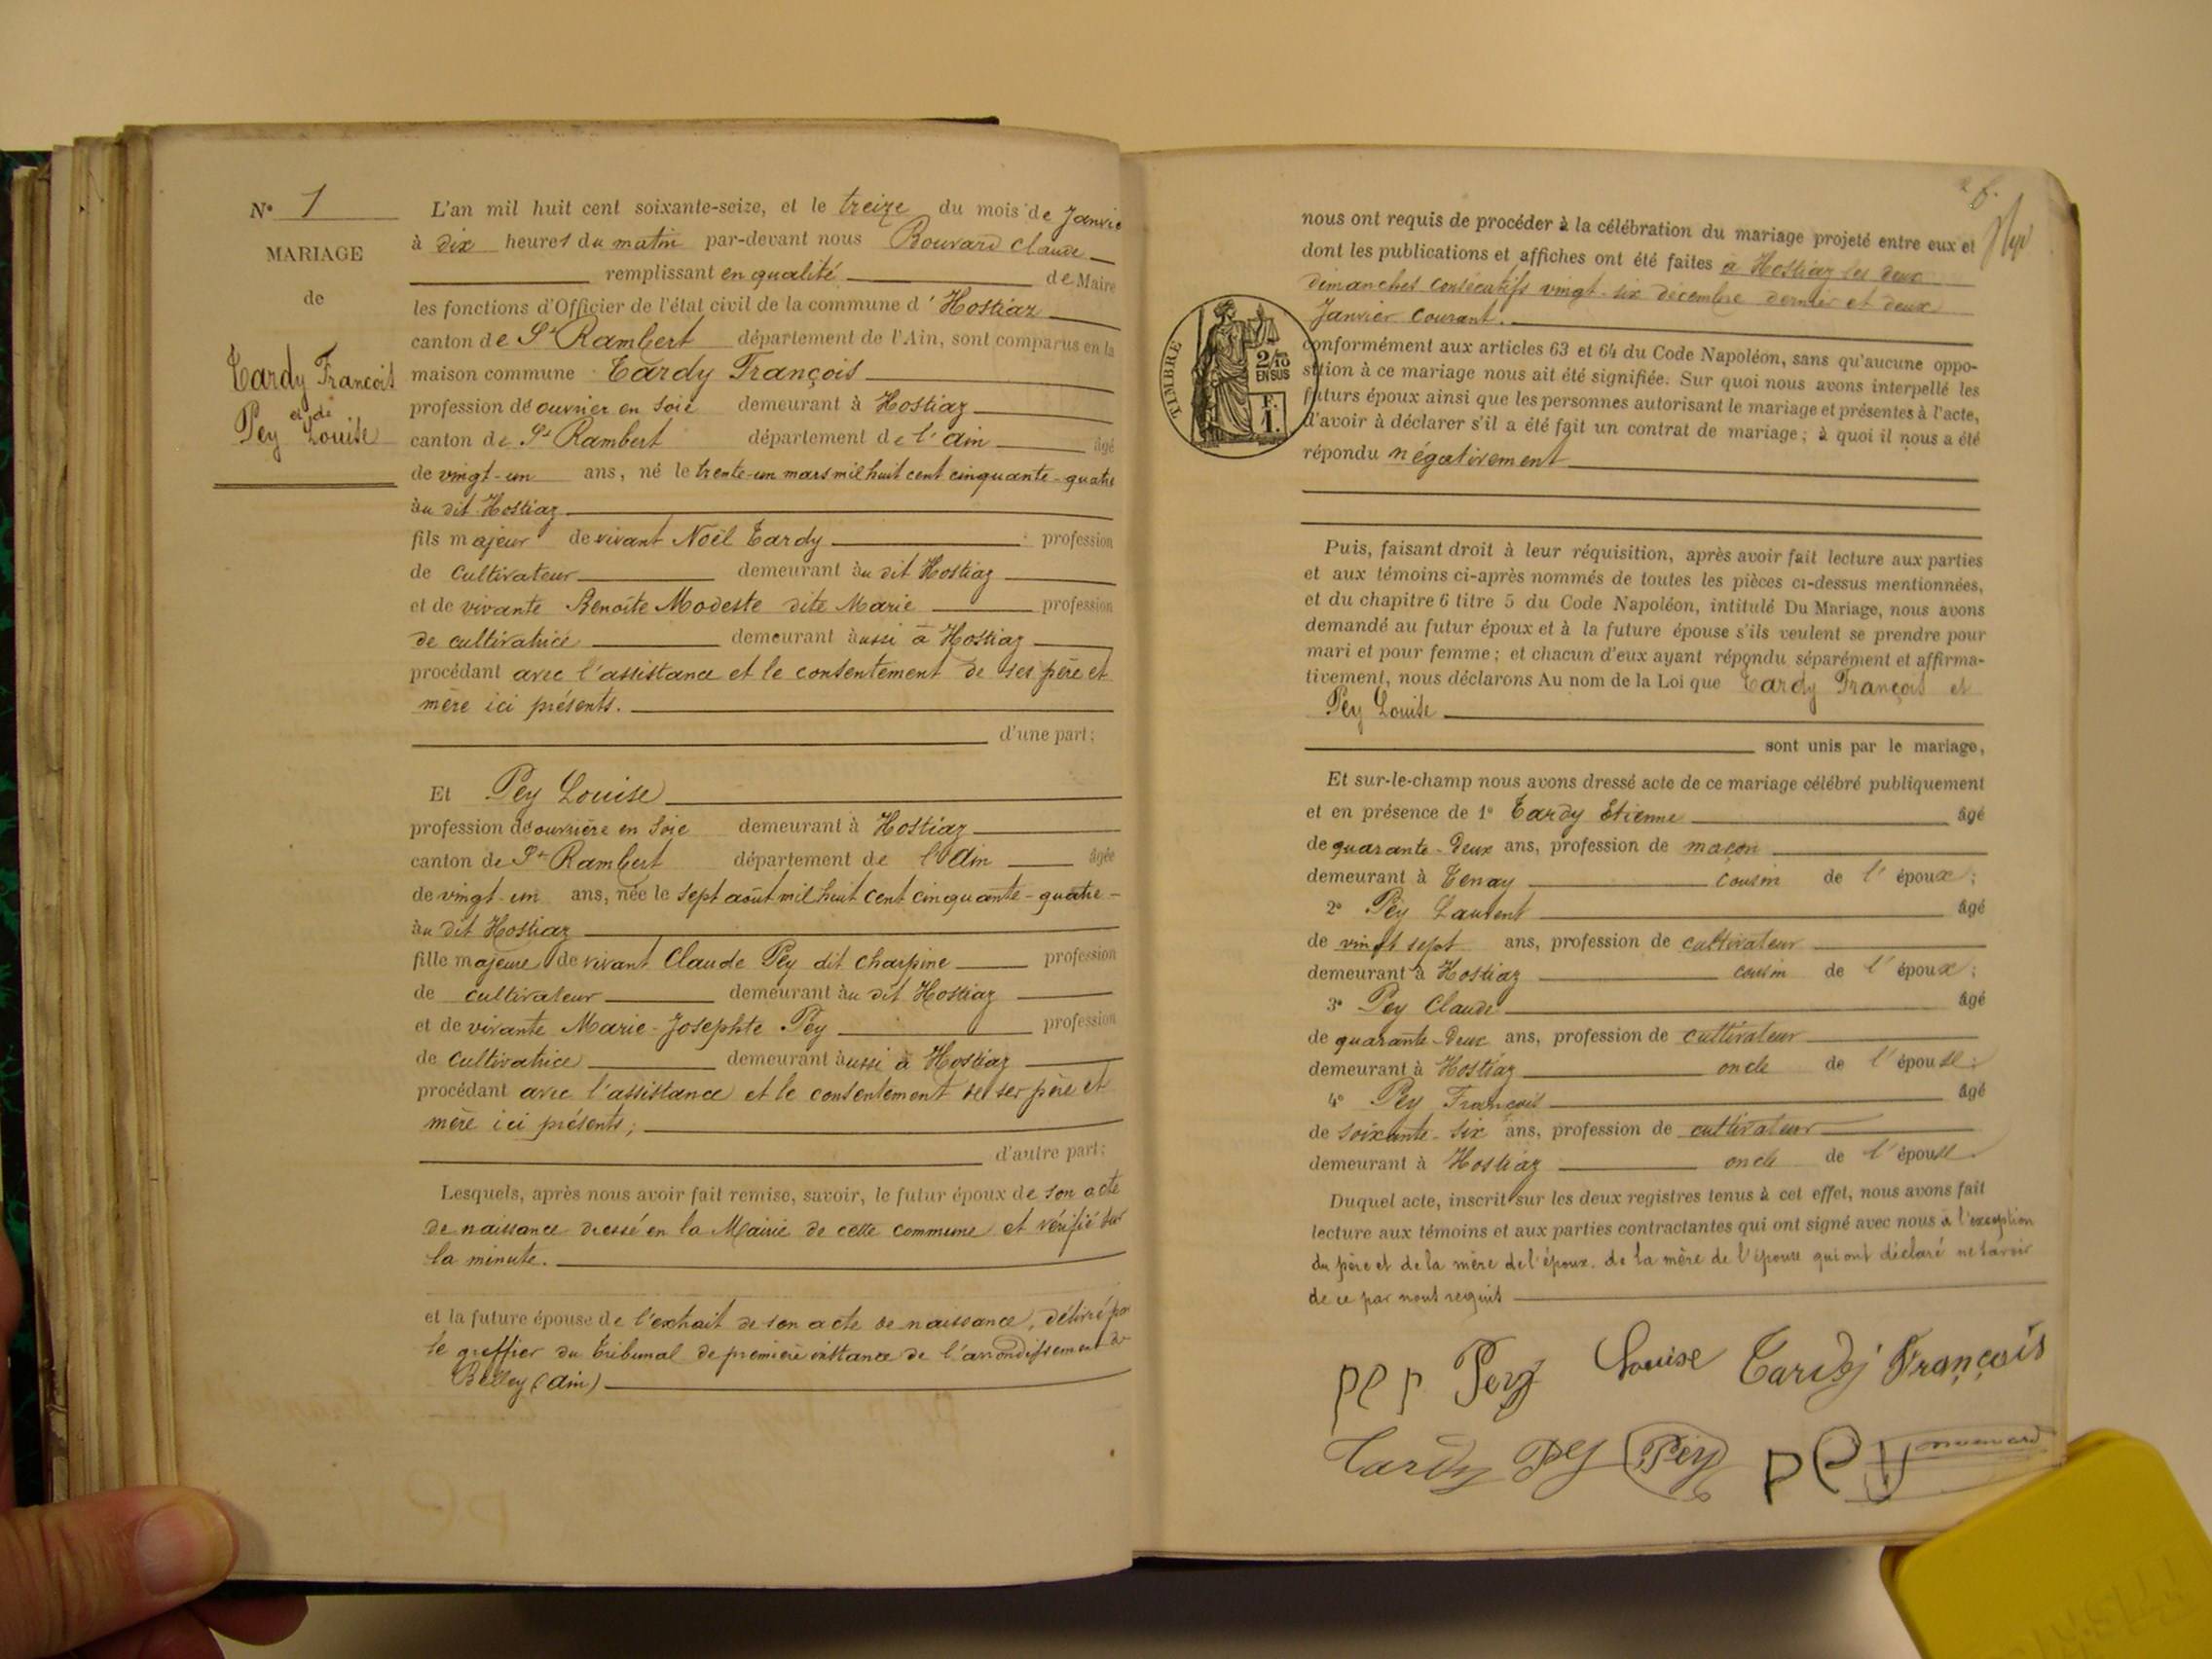 N° 1
MARIAGE
de
Tardy François
et de
Pey Louise
L'an mil huit cent soixante-seize, et le treize du mois de Janvie
à dix heures du matin par-devant nous Bouvard Claude
remplissant en qualité de Maire
les fonctions d'Officier de l'état civil de la commune d' Hostiaz
canton de St Rambert département de l'Ain, sont comparus en la
maison commune Tardy François
profession de ouvrier en soie demeurant à Hostiaz
canton de St Rambert département de l'ain âgé
de vingt-un ans, né le trente-un mars mil huit cent cinquante-quatre
au dit Hostiaz
fils majeur de vivant Noël Tardy profession
de cultivateur demeurant au dit Hostiaz
et de vivante Benoîte Modeste dite Marie profession
de cultivatrice demeurant aussi à Hostiaz
procédant avec l'assistance et le consentement de ses père et
mère ici présents.
d'une part;
Et Pey Louise
profession de ouvrière en soie demeurant à Hostiaz
canton de St Rambert département de l'Ain âgée
de vingt-un ans, née le sept août mil huit cent cinquante-quatre
au dit Hostiaz
fille majeure de vivant Claude Pey dit charpine profession
de cultivateur demeurant au dit Hostiaz
et de vivante Marie-Josephte Pey profession
de cultivatrice demeurant aussi à Hostiaz
procédant avec l'assistance et le consentement de ses père et
mère ici présents;
d'autre part;
Lesquels, après nous avoir fait remise, savoir, le futur époux de son acte
de naissance dressé en la Mairie de cette commune et vérifié sur
la minute.
et la future épouse de l'extrait de son acte de naissance, délivré par
le greffier du tribunal de première instance de l'arrondissement de
Belley (Ain)
nous ont requis de procéder à la célébration du mariage projeté entre eux et
dont les publications et affiches ont été faites à Hostiaz les deux
dimanches consécutifs vingt-six décembre dernier et deux
Janvier courant.
TIMBRE
2/10
EN SUS
F.
1.
conformément aux articles 63 et 64 du Code Napoléon, sans qu'aucune oppo-
sition à ce mariage nous ait été signifiée. Sur quoi nous avons interpellé les
futurs époux ainsi que les personnes autorisant le mariage et présentes à l'acte,
d'avoir à déclarer s'il a été fait un contrat de mariage; à quoi il nous a été
répondu négativement
Puis, faisant droit à leur réquisition, après avoir fait lecture aux parties
et aux témoins ci-après nommés de toutes les pièces ci-dessus mentionnées,
et du chapitre 6 titre 5 du Code Napoléon, intitulé Du Mariage, nous avons
demandé au futur époux et à la future épouse s'ils veulent se prendre pour
mari et pour femme; et chacun d'eux ayant répondu séparément et affirma-
tivement, nous déclarons Au nom de la Loi que Tardy François et
Pey Louise
sont unis par le mariage,
Et sur-le-champ nous avons dressé acte de ce mariage célébré publiquement
et en présence de 1° Tardy Etienne âgé
de quarante-deux ans, profession de maçon
demeurant à Tenay cousin de l'époux;
2° Pey Laurent âgé
de vingt sept ans, profession de cultivateur
demeurant à Hostiaz cousin de l'époux;
3° Pey Claude âgé
de quarante-deux ans, profession de cultivateur
demeurant à Hostiaz oncle de l'épouse;
4° Pey François âgé
de soixante-six ans, profession de cultivateur
demeurant à Hostiaz oncle de l'épouse.
Duquel acte, inscrit sur les deux registres tenus à cet effet, nous avons fait
lecture aux témoins et aux parties contractantes qui ont signé avec nous à l'exception
du père et de la mère de l'époux. de la mère de l'épouse qui ont déclaré ne savoir
de ce par nous requis
Pey Louise Tardy François
Tardy Pey Pey